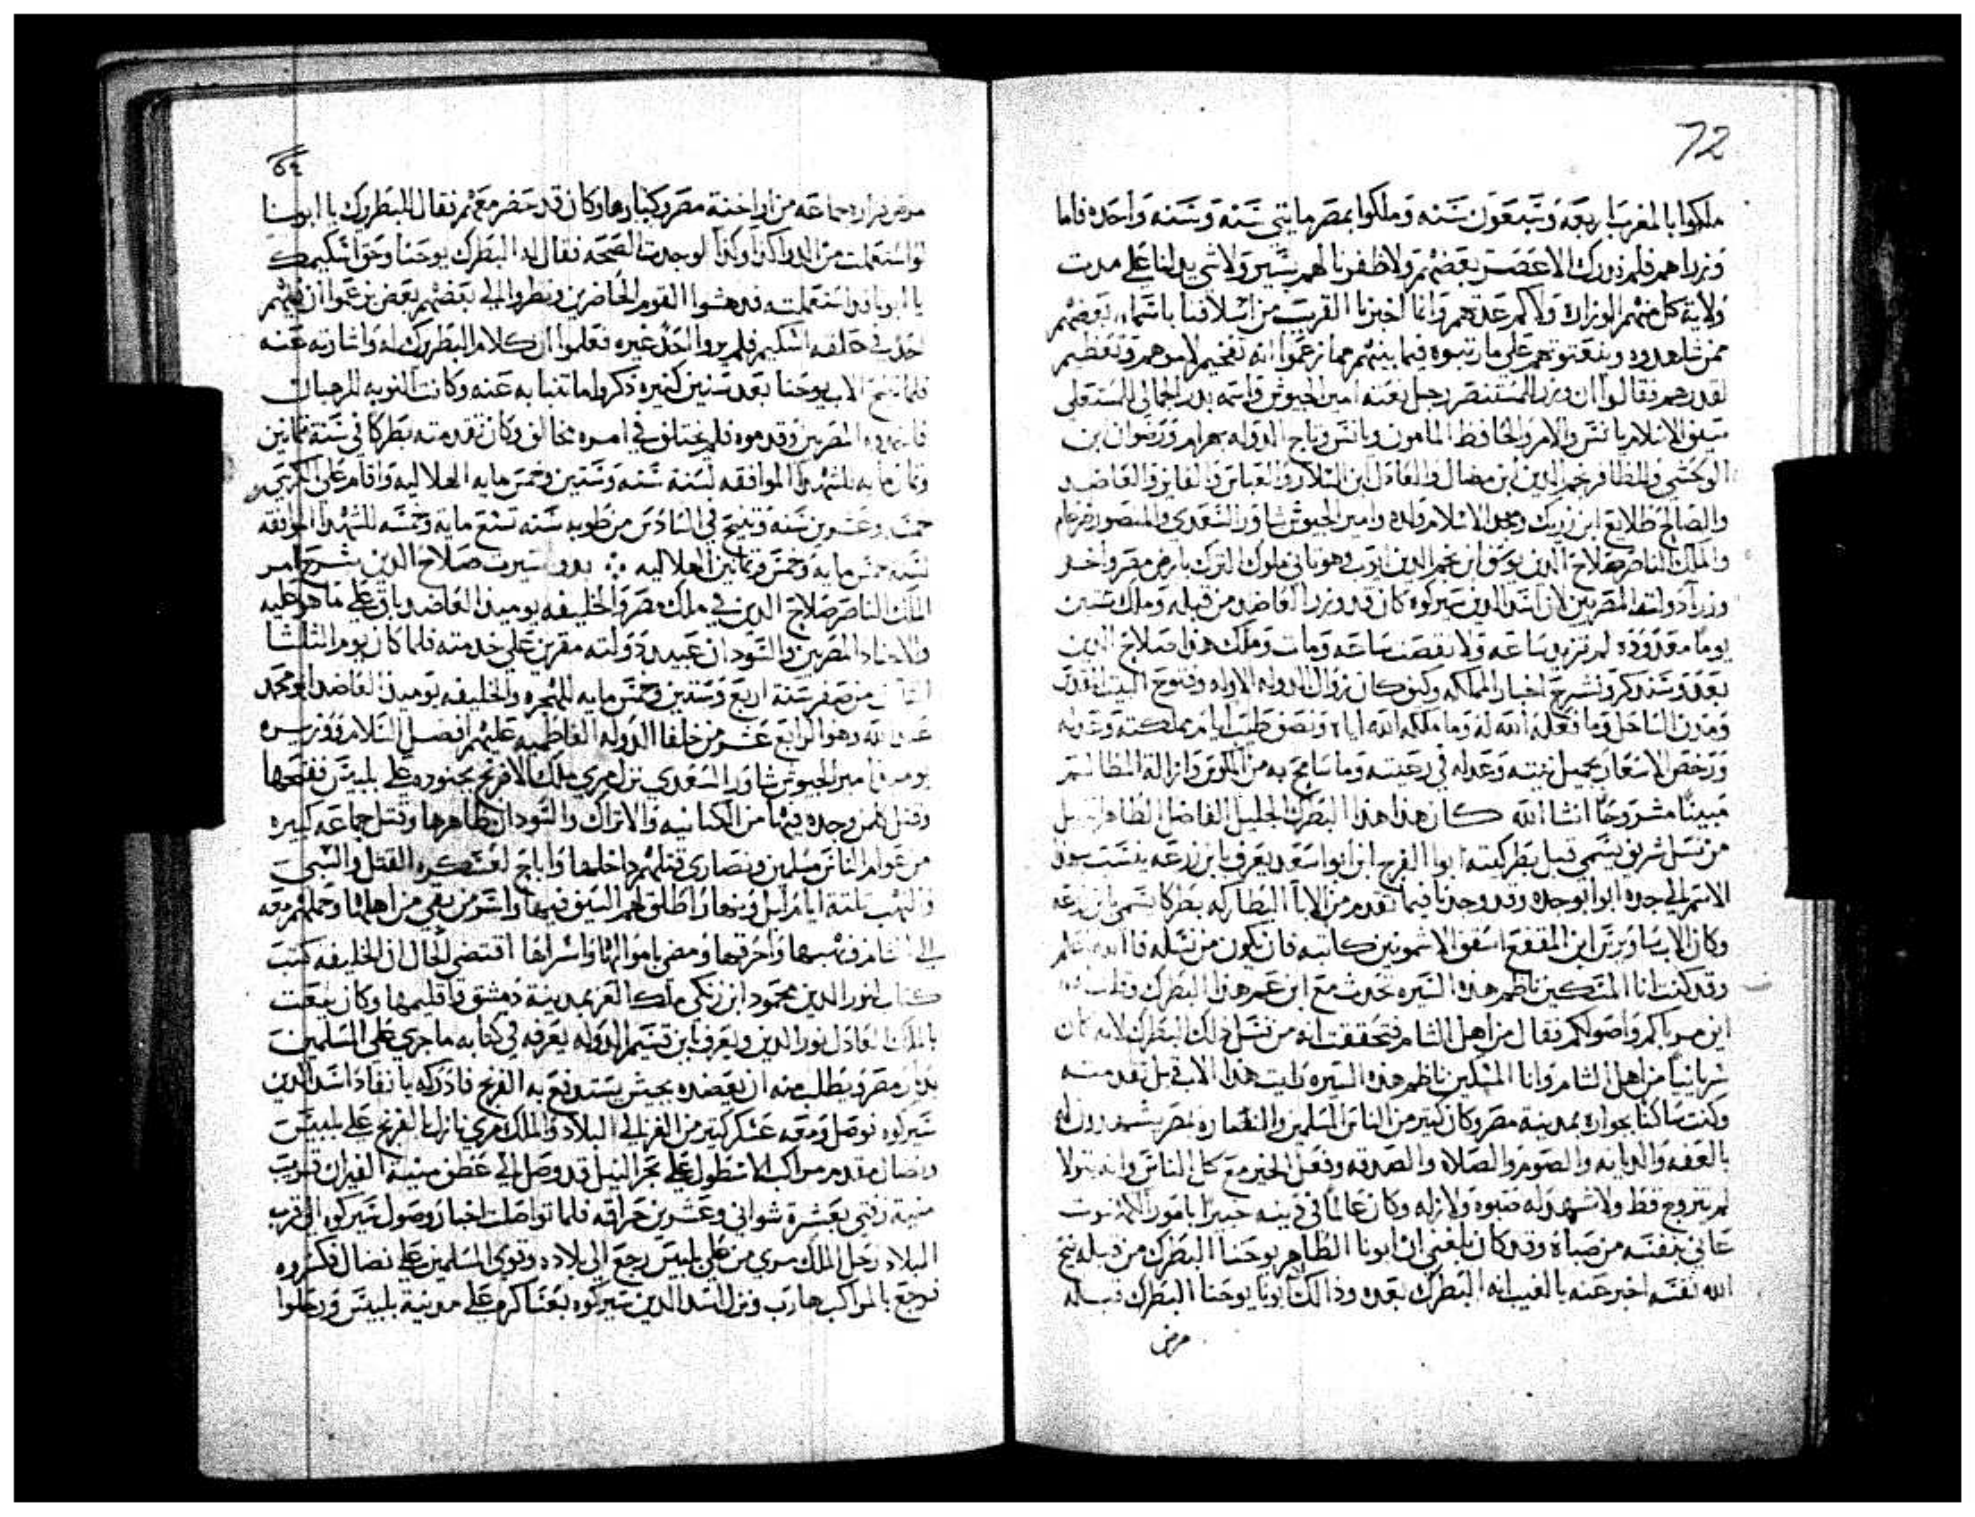 72
ملكوا بالمغرب اربعه وسبعون سنه وملكوا بمصر مايتي سنه وسنه واحده فاما
وزراهم فلم ندرك الا عصر بعضهم ولا ظفرنا لهم بسير ولا شي يدلنا علي مدت
ولاية كل منهم الوزاره ولا كم عدتهم وانما اخبرنا القريب من اسلافنا باسماء بعضهم
ممن شاهدوه وبنعتوتهم علي ما رتبوه فيما بينهم مما زعموا انه تفخيم لامرهم وتعظيم
لقدرهم فقالوا ان وزير المستنصر رجل نعته امير الجيوش واسمه بدر الجمالي المستعلي
سيف الاسلام يانس والامر والحافظ المامون ويانس وتاج الدوله بهرام ورضوان بن
الوكشي والظافر نجم الدين ابن مصال والعادل ابن السلار والعباس والفايز والعاضد
والصالح طلايع ابن رزيك ومجد الاسلام ولده وامير الجيوش شاور السعدي والمنصور ضرغام
والملك الناصر صلاح الدين يوسف ابن نجم الدين ايوب وهو ثاني ملوك الترك بارض مصر واخر
وزرآ دولة المصريين لان اسد الدين شيركوه كان قد وزر العاضد من قبله وملك ستين
يوما معدوده لم تزيد ساعه ولا نقصت ساعه ومات وملك هذا صلاح الدين
بعده وسنذكر ونشرح اخبار المملكه وكيف كان زوال الدوله الاوله وفتوح البيت المقدس
ومدن الساحل وما فعله الله له وما ملكه الله اياه ونصف طيب ايام مملكته وعدله
ورخص الاسعار بجميل نيته وعدله في رعيته وما سامح به من المكوس وازالة المظالم
مبينا مشروحا انشا الله كان هذا هذا البطرك الجليل الفاضل الطاهر
من نسل شريف يسمي قبل بطركيته ابوا الفرج ابن ابو اسعد يعرف بابن زرعه ينسب بهذا
الاسم الي جده ابوا ابو جده وقد وجدنا فيما تقدم من الابآ البطاركه بطركا يسمي ابن زرعه
وكان الاب ساويرس ابن المقفع اسقف الاشمونين كاتبه فان يكون من نسله فالله اعلم
وقد كنت انا المسكين ناظم هذه السيره تحدثت مع ابن عم هذا البطرك وقلت له
اين مرباكم واصولكم فقال من اهل الشام فتحققت انه من نسل ذلك البطرك لانه كان
سريانيا من اهل الشام وانا المسكين ناظم هذه السيره رايت هذا الاب قبل تقدمته
وكنت ساكنا بجواره بمدينة مصر وكان كثير من الناس المسلمين والنصاره بمصر يشهدون له
بالعفه والديانه والصوم والصلاه والصدقه وفعل الخير مع كل الناس وانه بتولا
لم يتزوج قط ولا شهد له صبوه ولا زله وكان عالما في دينه خبيرا بامور اللاهوت
عاني بنفسه من صباه وقد كان بلغني ان ابونا الطاهر يوحنا البطرك من قبله نيح
الله نفسه اخبر عنه بالغيب انه البطرك بعده وذالك ان ابونا يوحنا البطرك قبله
مرض
مرض فزاره جماعه من اراخنة مصر وكبارها وكان قد حضر معهم فقال للبطريرك يا ابونا
لو استعملت من الدوا كذا وكذا لوجدت الصحه فقال له البطرك يوحنا وحق اسكيمك
يا ابونا قد استعملته فدهشوا القوم الحاضرين ونظروا الي بعضهم بعض زعموا ان فيهم
احد في حلقه اسكيم فلم يروا احد غيره فعلموا ان كلام البطرك له واشارته عنه
فلما تنيح الاب يوحنا بعد سنين كثيره ذكروا ما تنبا به عنه وكانت النوبه للرهبان
المصريين وقدموه فلم يختلف في امره مخالف وكان تقدمته بطركا في سنة ثمانين
وثمان مايه للشهدا الموافقه لسنة سته وستين وخمس مايه الهلاليه واقام علي الكرسي
خمس وعشرين سنه وتنيح في السادس من طوبه سنه تسع مايه وخمسه للشهدا الموافقه
لسنة خمس مايه وخمس وثمانين الهلاليه ∴ بدو سيرت صلاح الدين بشرح امر
الملك الناصر صلاح الدين في ملك مصر والخليفه يوميذ العاضد وباق علي ما هو عليه
والاجناد المصريين والسودان عبيد دولته مقرين علي خدمته فلما كان يوم الثلثا
من صفر سنة اربع وستين وخمس مايه للهجره والخليفه يوميذ العاضد ابو محمد
عبد الله وهو الرابع عشر من خلفا الدوله الفاطميه عليهم افضل السلام ووزيره
يوميذ امير الجيوش شاور السعدي نزل مري ملك الافرنج بجنوده علي بلبيس ففتحها
وقتل من وجده فيها من الكنانيه والاتراك والسودان بظاهرها وقتل جماعه كبيره
من عوام الناس مسلمين ونصاري قتلهم داخلها واباح لعسكره القتل والسبي
والنهب ثلتة ايام ليل ونهار واطلق لهم السيف فيها واسر من بقي من اهلها وحملهم معه
الي الشام ونهبها واحرقها ومضي باموالها واسراها اقتضي الحال ان الخليفه كتب
كتاب لنور الدين محمود ابن زنكي ملك الغز بمدينة دمشق واقليمها وكان ينعت
بالملك العادل نور الدين ويعرف بابن قسيم الدوله يعرفه في كتابه ما جري علي المسلمين
بديار مصر ويطلب منه ان يعضده بجيش يستدفع به الفرنج فادركه بانفاد اسد الدين
شيركوه فوصل ومعه عسكر كثير من الغز الي البلاد والملك مري نازل بالفرنج علي بلبيس
ونضال مقدم مراكب الاسطول علي بحر النيل قد وصل الي غطن منية الفيران قريب
منية زفتي بعشرة شواني وعشرين حراقه فلما تواصلت اخبار وصول شيركوه الي قرب
البلاد رحل الملك مري من علي بلبيس رجع الي بلاده وقوي المسلمين علي نضال فكسروه
فرجع بالمراكب هارب ونزل اسد الدين شيركوه بعساكره علي مدينة بلبيس ورحلوا